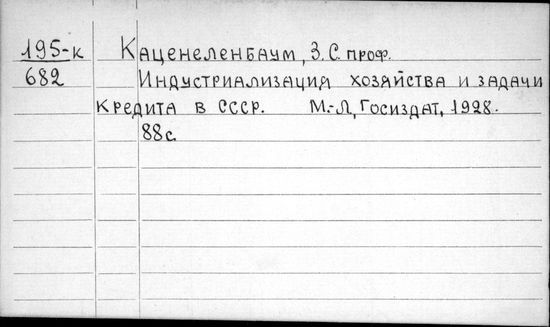 195-к Каценеленбаум, З.С. проф.
682 Индустриализация хозяйства и задачи
кредита в СССР. М.-Л, Госиздат, 1928.
88с.